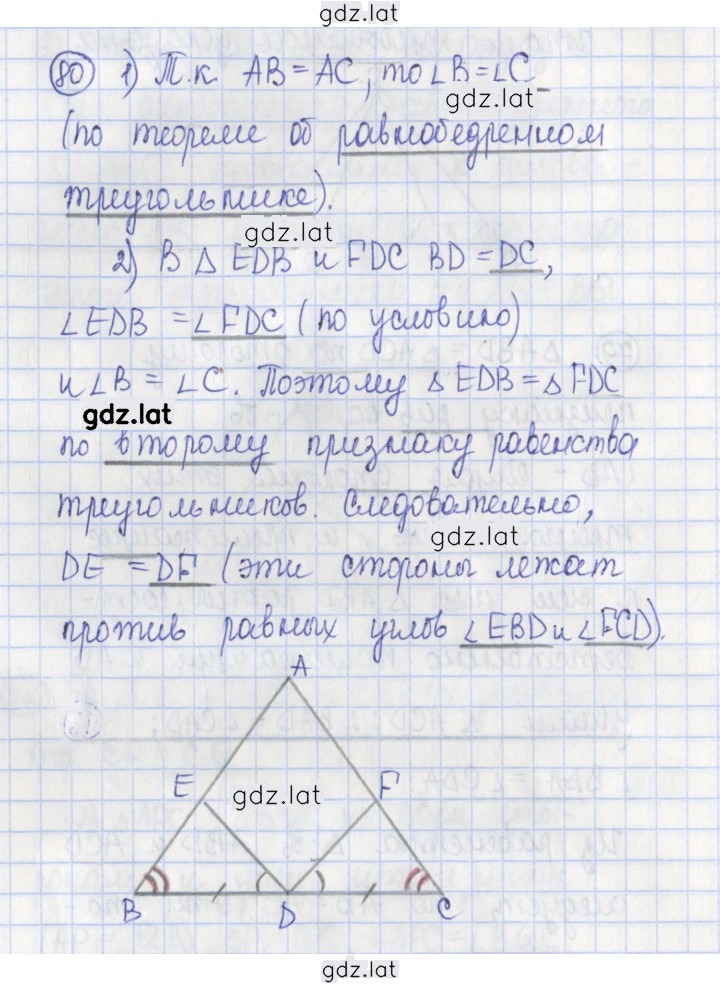 gdz.lat
80 1) Т.к. AB = AC, то ∠B = ∠C
gdz.lat
(по теореме об равнобедренном
треугольнике).
gdz.lat
2) В △ EDB и FDC BD = DC,
∠EDB = ∠FDC (по условию)
и ∠B = ∠C. Поэтому △ EDB = △ FDC
gdz.lat
по второму признаку равенства
треугольников. Следовательно,
gdz.lat
DE = DF (эти стороны лежат
против равных углов ∠EBD и ∠FCD).
A
E F
gdz.lat
B D C
gdz.lat